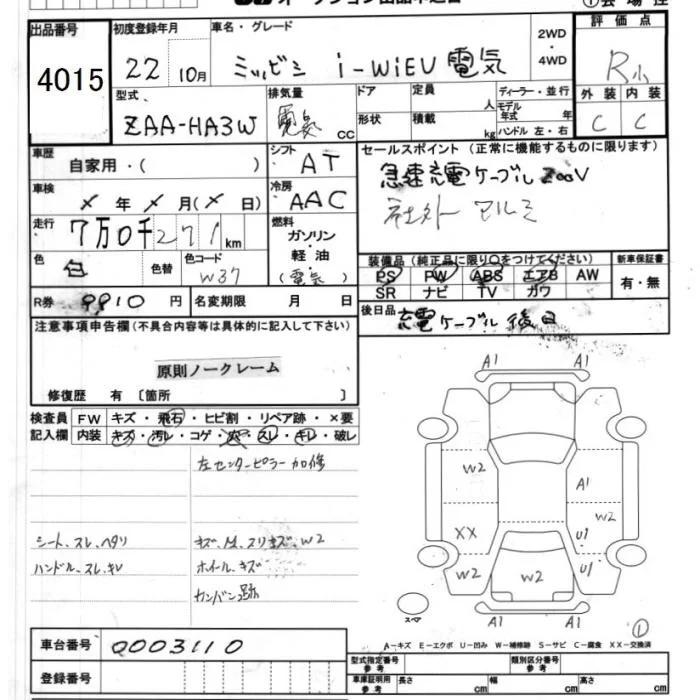 出品番号
4015
初度登録年月
22 10月
車名・グレード
ミツビシ i-WiEV 電気
2WD
・
4WD
評価点
R小
外装 内装
C C
型式
ZAA-HA3W
排気量
電気 cc
ドア
形状
定員 人
積載 kg
ディーラー・並行
モデル年式 年
ハンドル 左・右
車歴
自家用・( )
シフト
AT
セールスポイント (正常に機能するものに限ります)
急速充電ケーブル200V
社外アルミ
車検
× 年 × 月(× 日)
冷房
AAC
走行
7万0千271km
燃料
ガソリン
・
軽油
(電気)
色
白
色替
色コード
W37
装備品(純正品に限り○をつけてください)
PS PW ABS エアB AW
SR ナビ TV カワ
新車保証書
有・無
R券
9910円
名変期限 月 日
後日品
充電ケーブル後日
注意事項申告欄(不具合内容等は具体的に記入して下さい)
原則ノークレーム
修復歴 有 〔箇所 〕
検査員
記入欄
FW キズ・飛石・ヒビ割・リペア跡・×要
内装 キズ・汚レ・コゲ・穴・スレ・キレ・破レ
左センターピラー加修
シート、スレ、ヘタリ
ハンドル、スレ、キレ
ホイール、キズ
カンバン跡
A1 A1
W2 A1
W2
XX U1
W2 W2 U1
A1 A1
スペア
①
A-キズ E-エクボ U-凹み W-補修跡 S-サビ C-腐食 XX-交換済
車台番号
0003110
登録番号
型式指定番号
参考
類別区分番号
参考
車庫証明用
参考
長さ cm
幅 cm
高さ cm